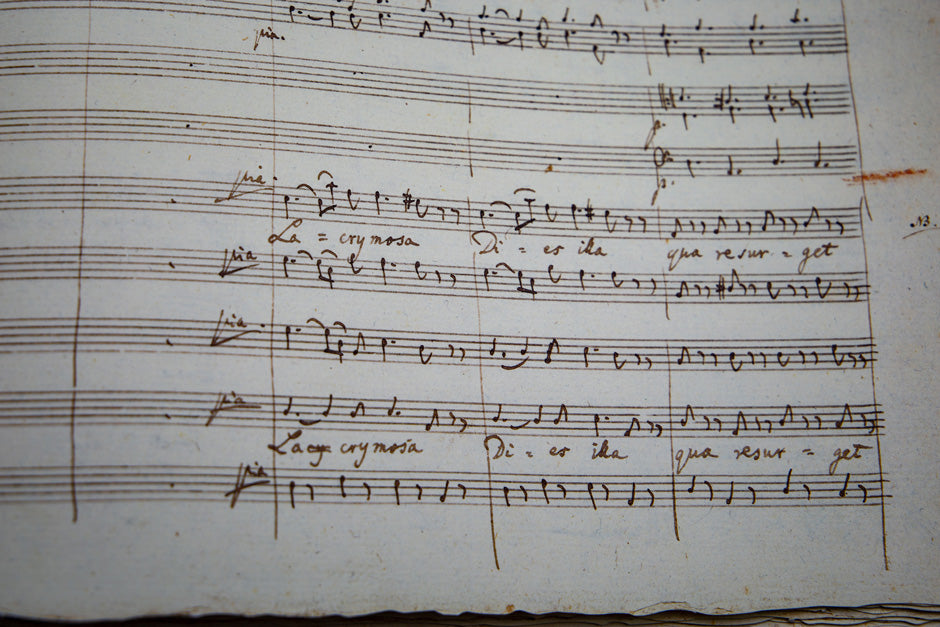 pia.
p.
p.
pia.
NB.
La = crymosa Di = es illa qua resur = get
pia
pia.
pia
Lacry crymosa Di = es illa qua resur = get
pia